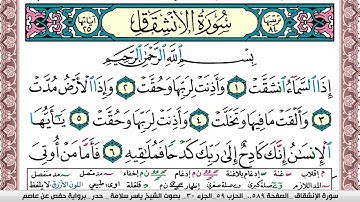 سُورَةُ الِانشِقَاقِ
بِسْمِ اللَّهِ الرَّحْمَٰنِ الرَّحِيمِ
إِذَا السَّمَاءُ انشَقَّتْ ١ وَأَذِنَتْ لِرَبِّهَا وَحُقَّتْ ٢ وَإِذَا الْأَرْضُ مُدَّتْ
٣ وَأَلْقَتْ مَا فِيهَا وَتَخَلَّتْ ٤ وَأَذِنَتْ لِرَبِّهَا وَحُقَّتْ ٥ يَا أَيُّهَا
الْإِنسَانُ إِنَّكَ كَادِحٌ إِلَىٰ رَبِّكَ كَدْحًا فَمُلَاقِيهِ ٦ فَأَمَّا مَنْ أُوتِيَ
سورة الإنشقاق. الصفحة ٥٨٩. الحزب ٥٩. الجزء ٣٠. بصوت الشيخ ياسر سلامة. حدر. برواية حفص عن عاصم